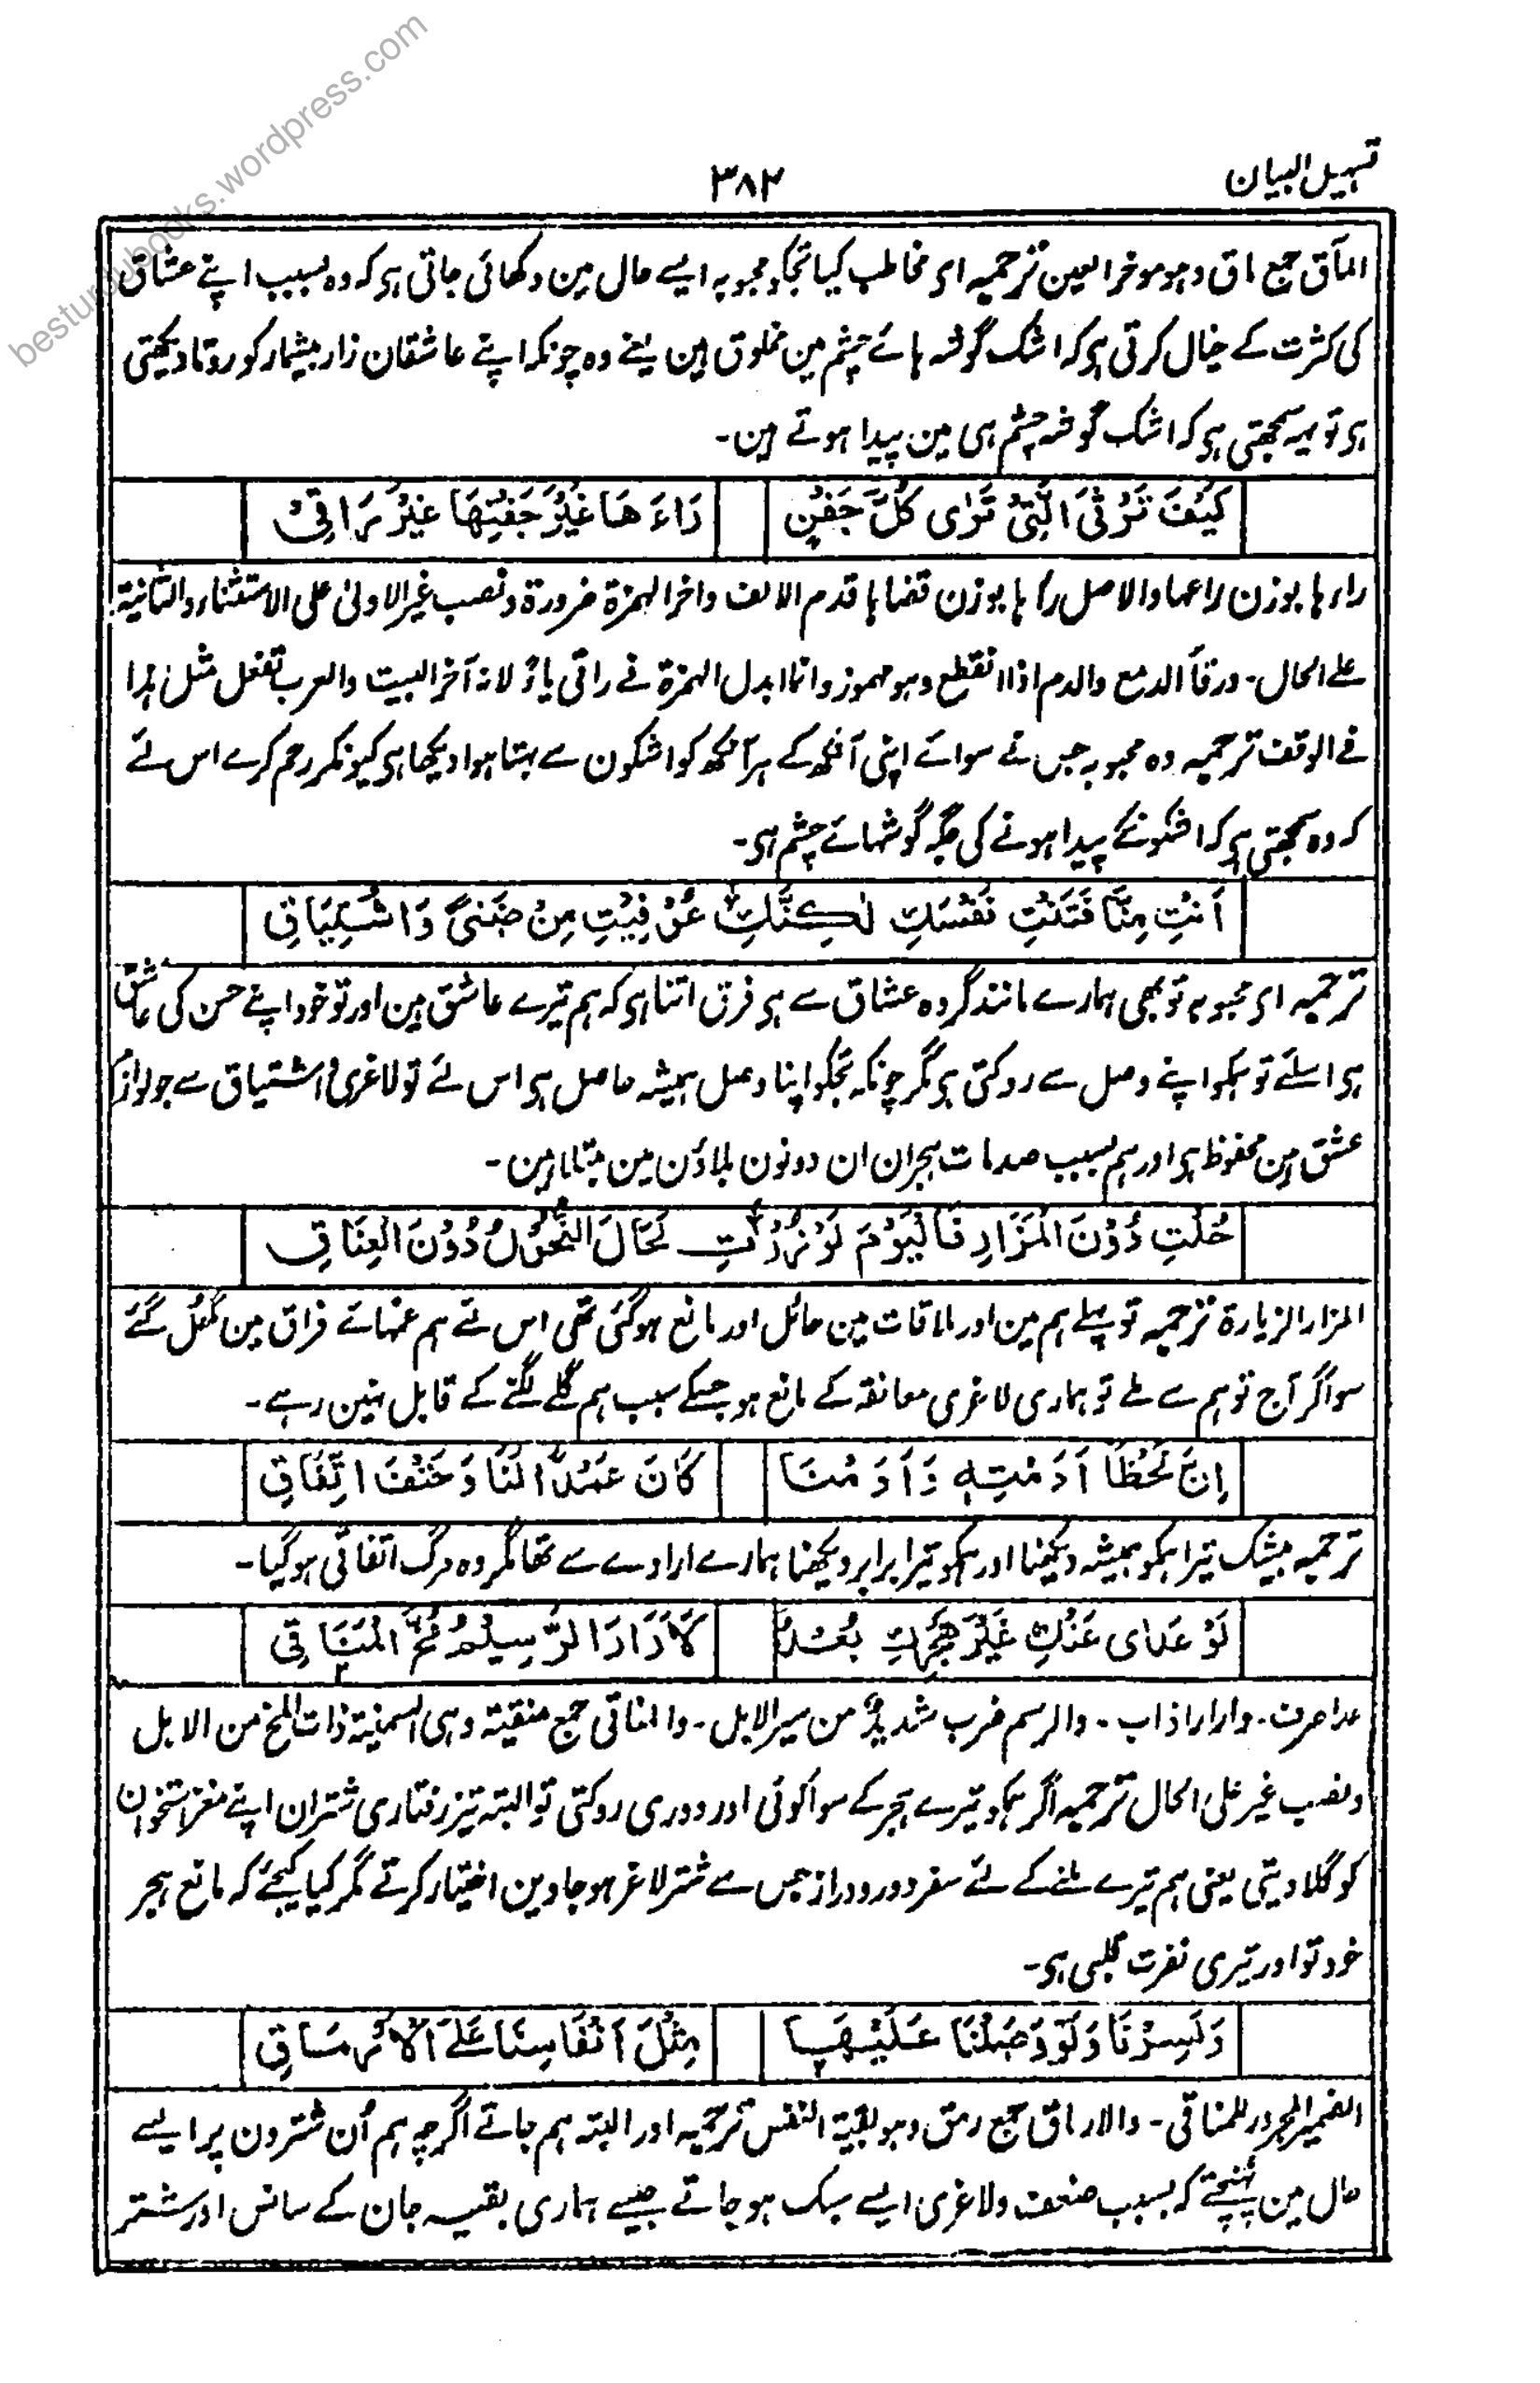 besturdubooks.wordpress.com
تسہیل البیان
۳۸۲
المآق جمع ماق وہو موخر العین ترجمہ اے مخاطب کیا تجکو محبوبہ ایسے حال مین دکھائی جاتی ہی کہ وہ بسبب اپنے عشاق
کی کثرت کے خیال کرتی ہی کہ اشک گوشہ ہائے چشم مین مخلوق ہین یعنے وہ چونکہ اپنے عاشقان زار بیشمار کو روتا دیکھتی
ہی تو یہ سمجھتی ہی کہ اشک گوشہ چشم ہی مین پیدا ہوتے ہین۔
كَيْفَ تَرْثِى الَّتِىْ تَرٰى كُلَّ جَفْنٍ رَاءَ هَا غَيْرَ جَفْنِهَا غَيْرَ رَاقِىْ
راءہا بوزن راعہا والاصل رآہا بوزن قضاہا قدم الالف واخر الہمزة ضرورة ونصب غیر الاولیٰ علی الاستثناء والثانیة
علے الحال۔ ورقأ الدمع والدم اذا انقطع وہو مہموز وانما ابدل الہمزة فے راقی یاءً لانہ آخر البیت والعرب تفعل مثل ہذا
فے الوقف ترجمہ وہ محبوبہ جس نے سوائے اپنی آنکھ کے ہر آنکھ کو اشکون سے بہتا ہوا دیکھا ہی کیونکر رحم کرے اس لئے
کہ وہ سمجھتی ہی کہ اشکونکے پیدا ہونے کی جگہ گوشہائے چشم ہی۔
اَنْتِ مِنَّا فَتَنْتِ نَفْسَكِ لٰكِنَّكِ عُوْفِيْتِ مِنْ ضَنىً وَاشْتِيَاقِ
ترجمہ ای محبوبہ تو بھی ہمارے مانند گروہ عشاق سے ہی فرق اتنا ہی کہ ہم تیرے عاشق ہین اور تو خود اپنے حسن کی عاشق
ہی اسلئے تو ہمکو اپنے وصل سے روکتی ہی مگر چونکہ تجکو اپنا وصل ہمیشہ حاصل ہی اس لئے تو لاغری و اشتیاق سے جو لوازم
عشق ہین محفوظ ہی اور ہم بسبب صدمات ہجران ان دونون بلاؤن مین مبتلا ہین۔
حُلْتِ دُوْنَ الْمَزَارِ فَالْيَوْمَ لَوْ زُرْتِ لَحَالَ النُّحُوْلُ دُوْنَ الْعِنَاقِ
المزار الزیارة ترجمہ تو پہلے ہم مین اور ملاقات مین حائل اور مانع ہوگئی تھی اس لئے ہم غمہائے فراق مین گھل گئے
سو اگر آج تو ہم سے ملے تو ہماری لاغری معانقہ کے مانع ہو جسکے سبب ہم گلے لگنے کے قابل نہین رہے۔
اِنَّ لَحْظًا اَدَمْتِهٖ وَاَدَمْنَا كَانَ عَمْدًا لَنَا وَحَتْفَ اتِّفَاقِ
ترجمہ بیشک تیرا ہمکو ہمیشہ دیکھنا اور ہمکو تیرا برابر دیکھنا ہمارے ارادے سے تھا مگر وہ مرگ اتفاقی ہوگیا۔
لَوْ عَدٰى عَنْكِ غَيْرَ هَجْرِكِ بُعْدٌ لَاَرَارَ الرَّسِيْمُ مُخَّ الْمَنَاقِى
عدا صرف۔ وارار اذاب۔ والرسم ضرب شدید من سیر الابل۔ والمناقی جمع منقیة وہی السمینة ذات المخ من الابل
ونصب غیر علی الحال ترجمہ اگر ہمکو تیرے ہجر کے سوا کوئی اور دوری روکتی تو البتہ تیز رفتاری شتران اپنے مغز استخوان
کو گلا دیتی یعنی ہم تیرے ملنے کے لئے سفر دور و دراز جس سے شتر لاغر ہو جاوین اختیار کرتے مگر کیا کیجئے کہ مانع ہجر
خود تو اور تیری نفرت قلبی ہی۔
وَلَسِرْنَا وَلَوْ وَصَلْنَا عَلَيْهَا مِثْلَ اَنْفَاسِنَا عَلَے الْاَرْمَاقِ
الضمیر المجرور للمناقی۔ والارماق جمع رمق وہو بقیة النفس ترجمہ اور البتہ ہم جاتے اگرچہ ہم اُن شترون پر ایسے
حال مین پہنچتے کہ بسبب ضعف ولاغری ایسے سبک ہو جاتے جیسے ہماری بقیہ جان کے سانس اور شتر